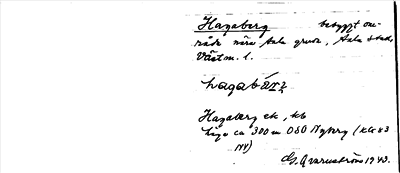 Hagaberg bebyggt om-
råde nära Sala gruva, Sala stad,
Västm. l.
hagabárj
Hagaberg ek, kb
läge ca 300 m OSO Nyberg (
NV)
G. Qvarnström 1943.